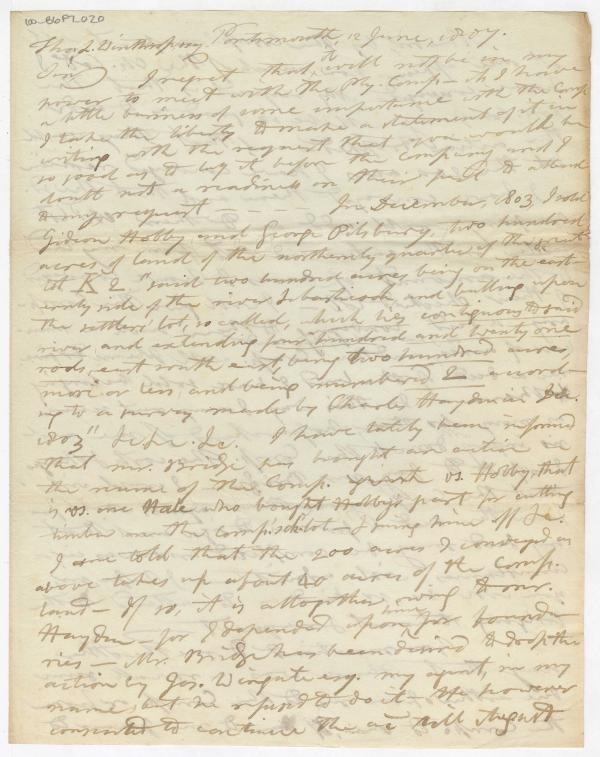 60-86P2020
Thos. L. Winthrop esq. Portsmouth, 12 June, 1807.
Sir, I regret that it will not be in my
power to meet with the Ply. Comp— as I have
a little business of some importance with the Comp
I take the liberty to make a statement of it in
writing with the request that you would be
so good as to lay it before the Company and I
doubt not a readiness on their part to attend
to my request — — — In December, 1803 I sold
Gideon Hobby and George Pilsbury, two hundred
acres of land of the northernly quarter of the great
lot K 2. "said two hundred acres being on the east
ernly side of the river and butting upon
the settlers lot, so called, which lies contiguous to said
river and extending four hundred and twenty one
rods, east south east, being two hundred acres,
more or less, and being numbered 2 accord-
ing to a survey made by Charles Hayden in Dec.
1803" &c &c. &c. I have lately been informed
that Mr. Bridge has brought an action in
the name of the Comp. vs. Hobby, that
is vs. one Hale who bought Hobby's part for cutting
timber on the comp's lot — being mine off &c.
I am told that the 200 acres I conveyed as
above takes up about 40 acres of the Comp.
land — If so, it is altogether owing to mr.
Hayden — for I depended upon him for bounda-
ries — Mr. Bridge has been desired to drop the
action by Jos. Wingate esq. my agent, in my
name but he refused to do it. He however
consented to continue the ac till August